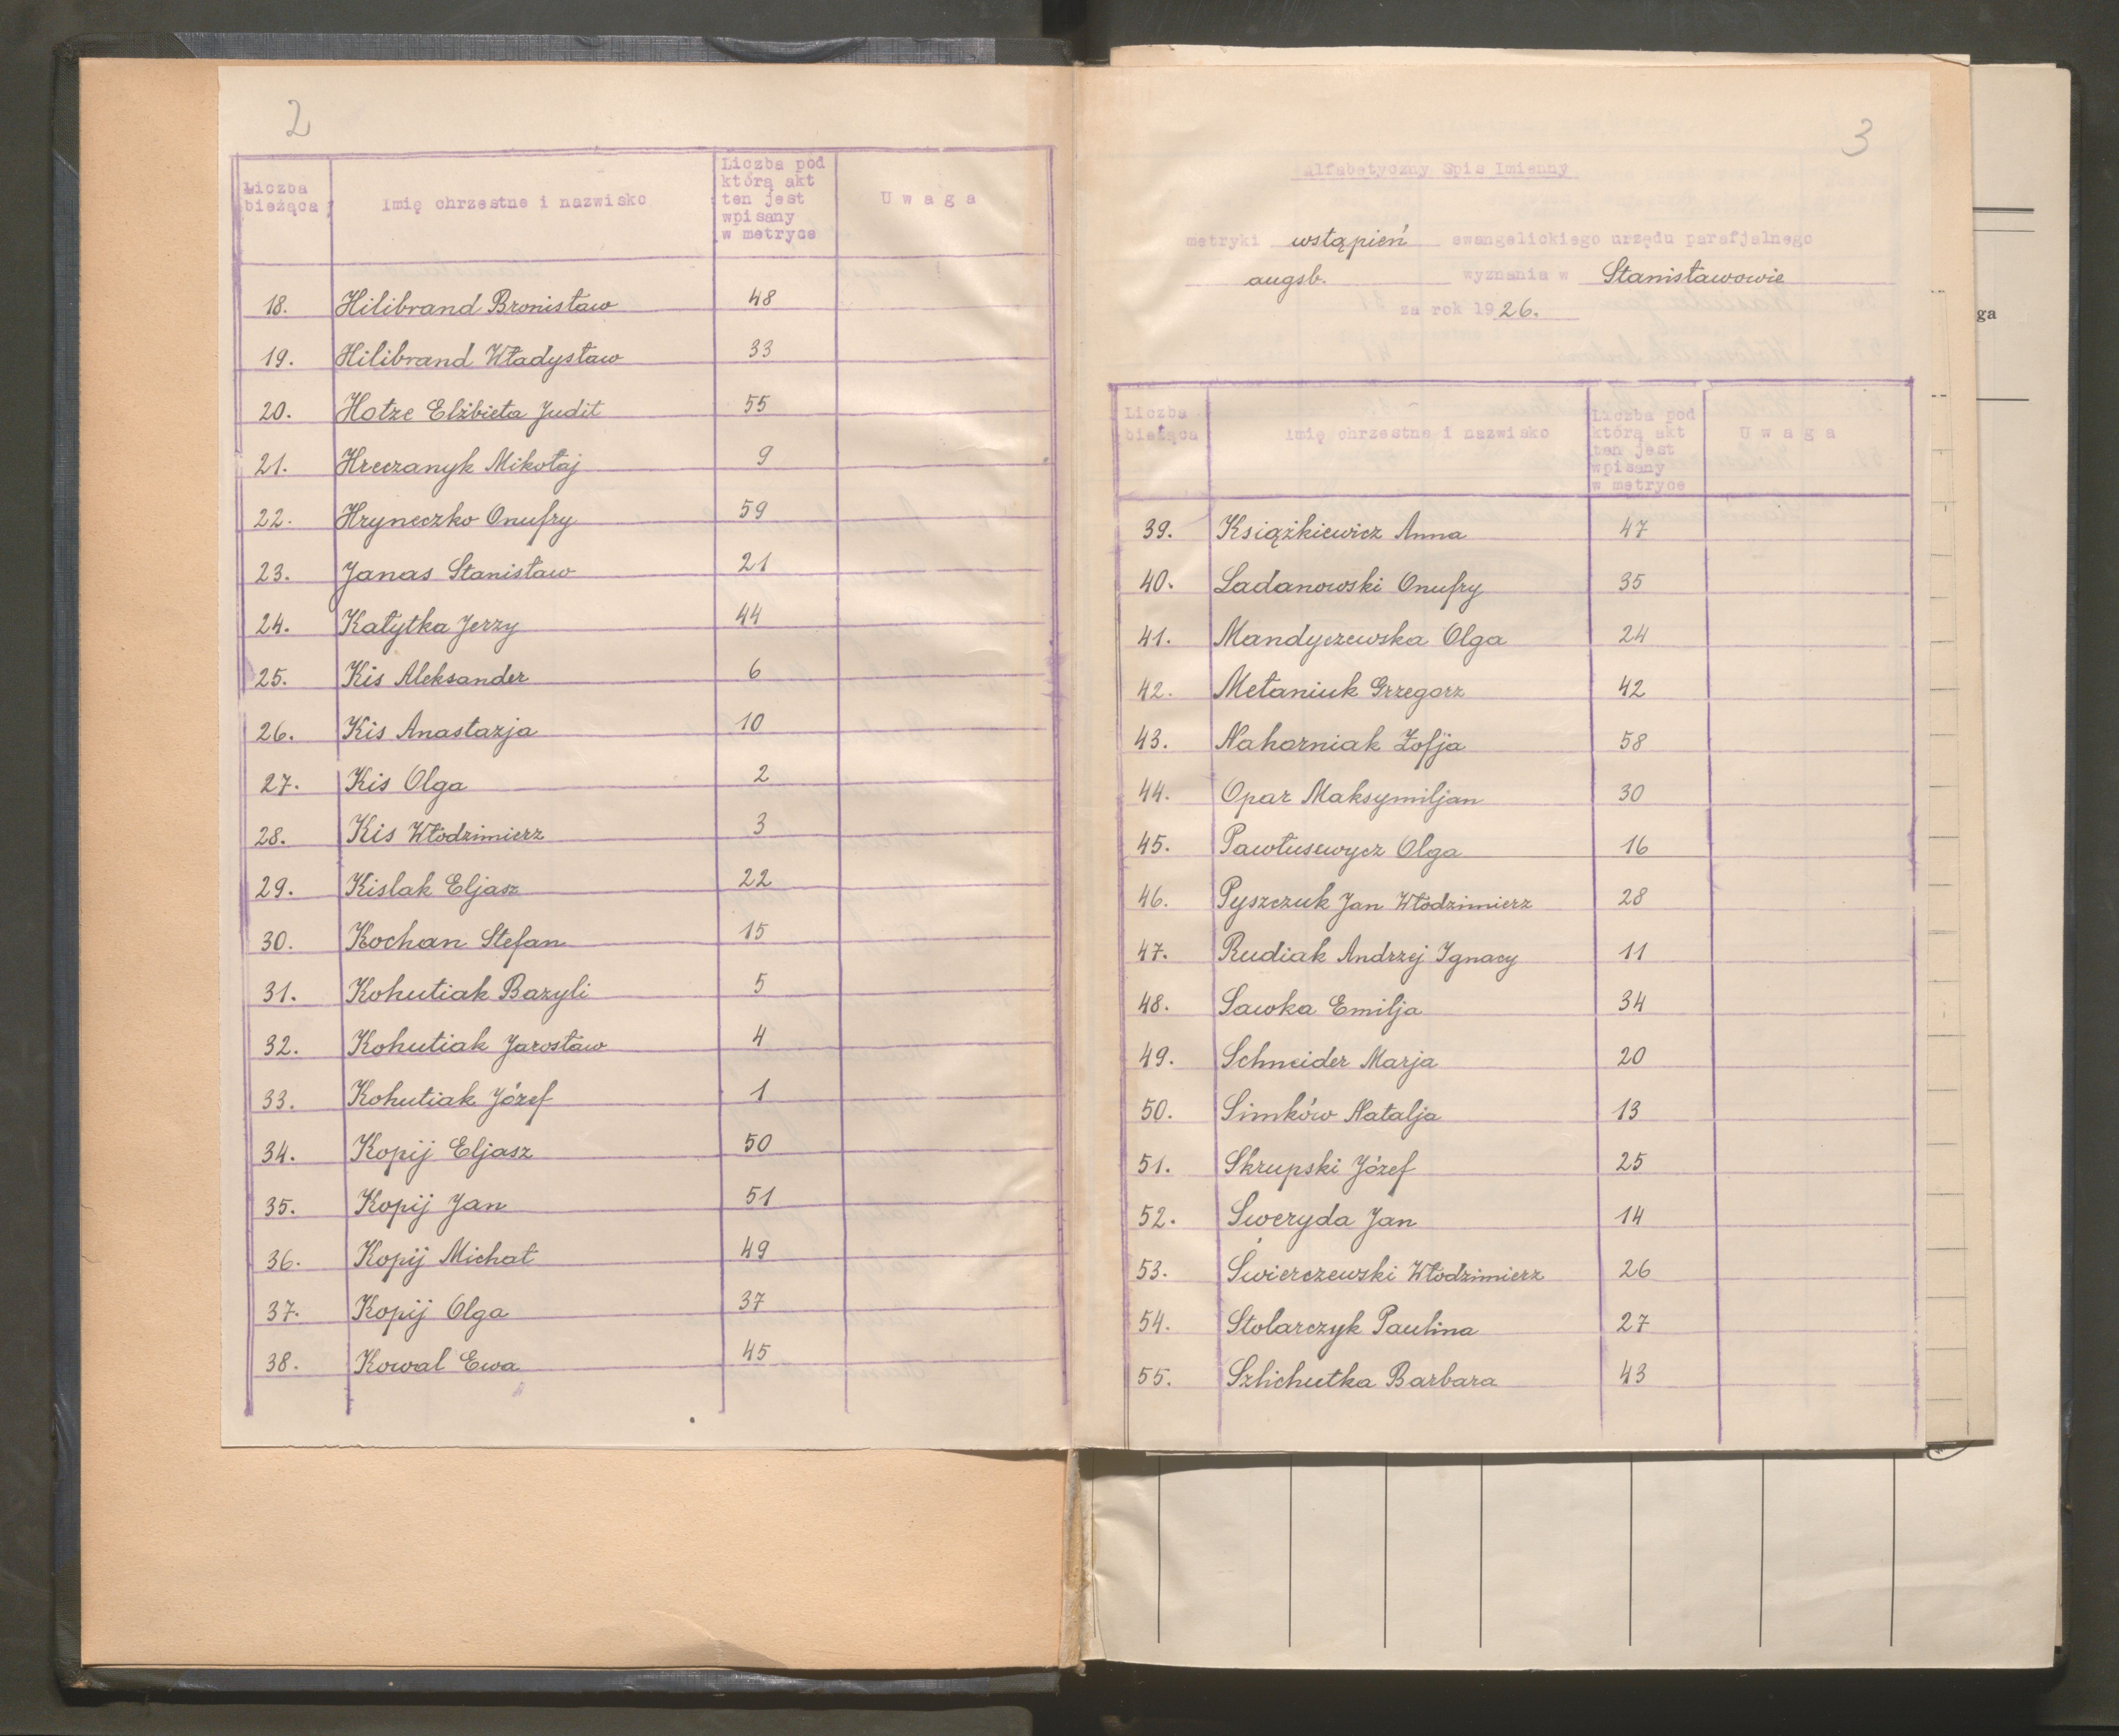 2
Liczba bieżąca
Imię chrzestne i nazwisko
Liczba pod którą akt ten jest wpisany w metryce
Uwaga
18. Hilibrand Bronisław 48
19. Hilibrand Władysław 33
20. Hotze Elżbieta Judit 55
21. Hreczanyk Mikołaj 9
22. Hryneczko Onufry 59
23. Janas Stanisław 21
24. Kałytka Jerzy 44
25. Kis Aleksander 6
26. Kis Anastazja 10
27. Kis Olga 2
28. Kis Włodzimierz 3
29. Kislak Eljasz 22
30. Kochan Stefan 15
31. Kohutiak Bazyli 5
32. Kohutiak Jarosław 4
33. Kohutiak Józef 1
34. Kopij Eljasz 50
35. Kopij Jan 51
36. Kopij Michał 49
37. Kopij Olga 37
38. Kowal Ewa 45
3
Alfabetyczny Spis Imienny
metryki wstąpień ewangelickiego urzędu parafjalnego
augsb. wyznania w Stanisławowie
za rok 1926.
Liczba bieżąca
Imię chrzestne i nazwisko
Liczba pod którą akt ten jest wpisany w metryce
Uwaga
39. Książkiewicz Anna 47
40. Ladanowski Onufry 35
41. Mandyczewska Olga 24
42. Mełaniuk Grzegorz 42
43. Nahorniak Zofja 58
44. Opar Maksymiljan 30
45. Pawłusewycz Olga 16
46. Pyszczuk Jan Włodzimierz 28
47. Rudiak Andrzej Ignacy 11
48. Sawka Emilja 34
49. Schneider Marja 20
50. Simków Natalja 13
51. Skrupski Józef 25
52. Sweryda Jan 14
53. Świerczewski Włodzimierz 26
54. Stolarczyk Paulina 27
55. Szlichutka Barbara 43
ga